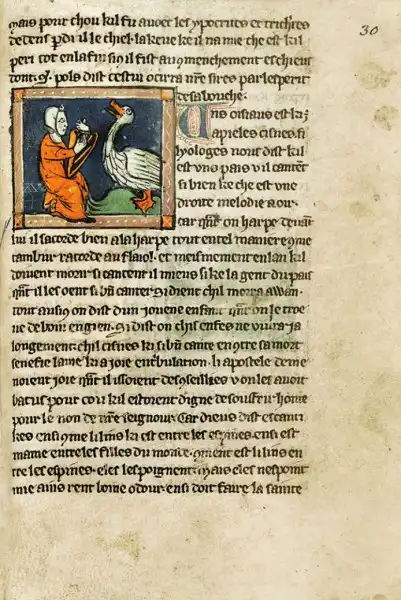 30
mais pour chou kil fu avoec les ypocrites et trichies
de tens pdi il le chiel. la keue ke il na mie che est kil
peri tot en la fin si
tout. pols dist cestui ocirra nre sires par lesperit
de sa bouche.
Uns oisiaus est ki
apieles cisnes. fi
syologes nous dist kil
est vns pais v il cantent
si bien ke che est vne
droite melodie a oir.
car qnt on harpe deuant
lui il sacorde bien a la harpe tout en tel maniere
tambur racorde au flaiol. et meismement en lan kil
doiuent morir si cantent il mieus si ke la gent du pais
qnt il les oent si bn canter si dient chil morra awan.
tout ausi on dist dun jouene enfant qnt on le troe
ue de boin engien. si dist on chis enfes ne viura ja
longement. chil cisnes ki si bn cante en sa mort
senefie lame ki a joie en tbulation. li apostele deme
noient joie qnt il issoient des v on les auoit
batus pour cou kil estoient digne de soufrir honte
pour le non de nre seignour. Car dieus dist es canti
kes ensi li lins ki est entre les espines. ensi est
mame entre les filles du monde. est li lins en
tre les espines. eles le poignent. mais eles nespoint
mie ains rent boine odour. ensi doit faire la sainte